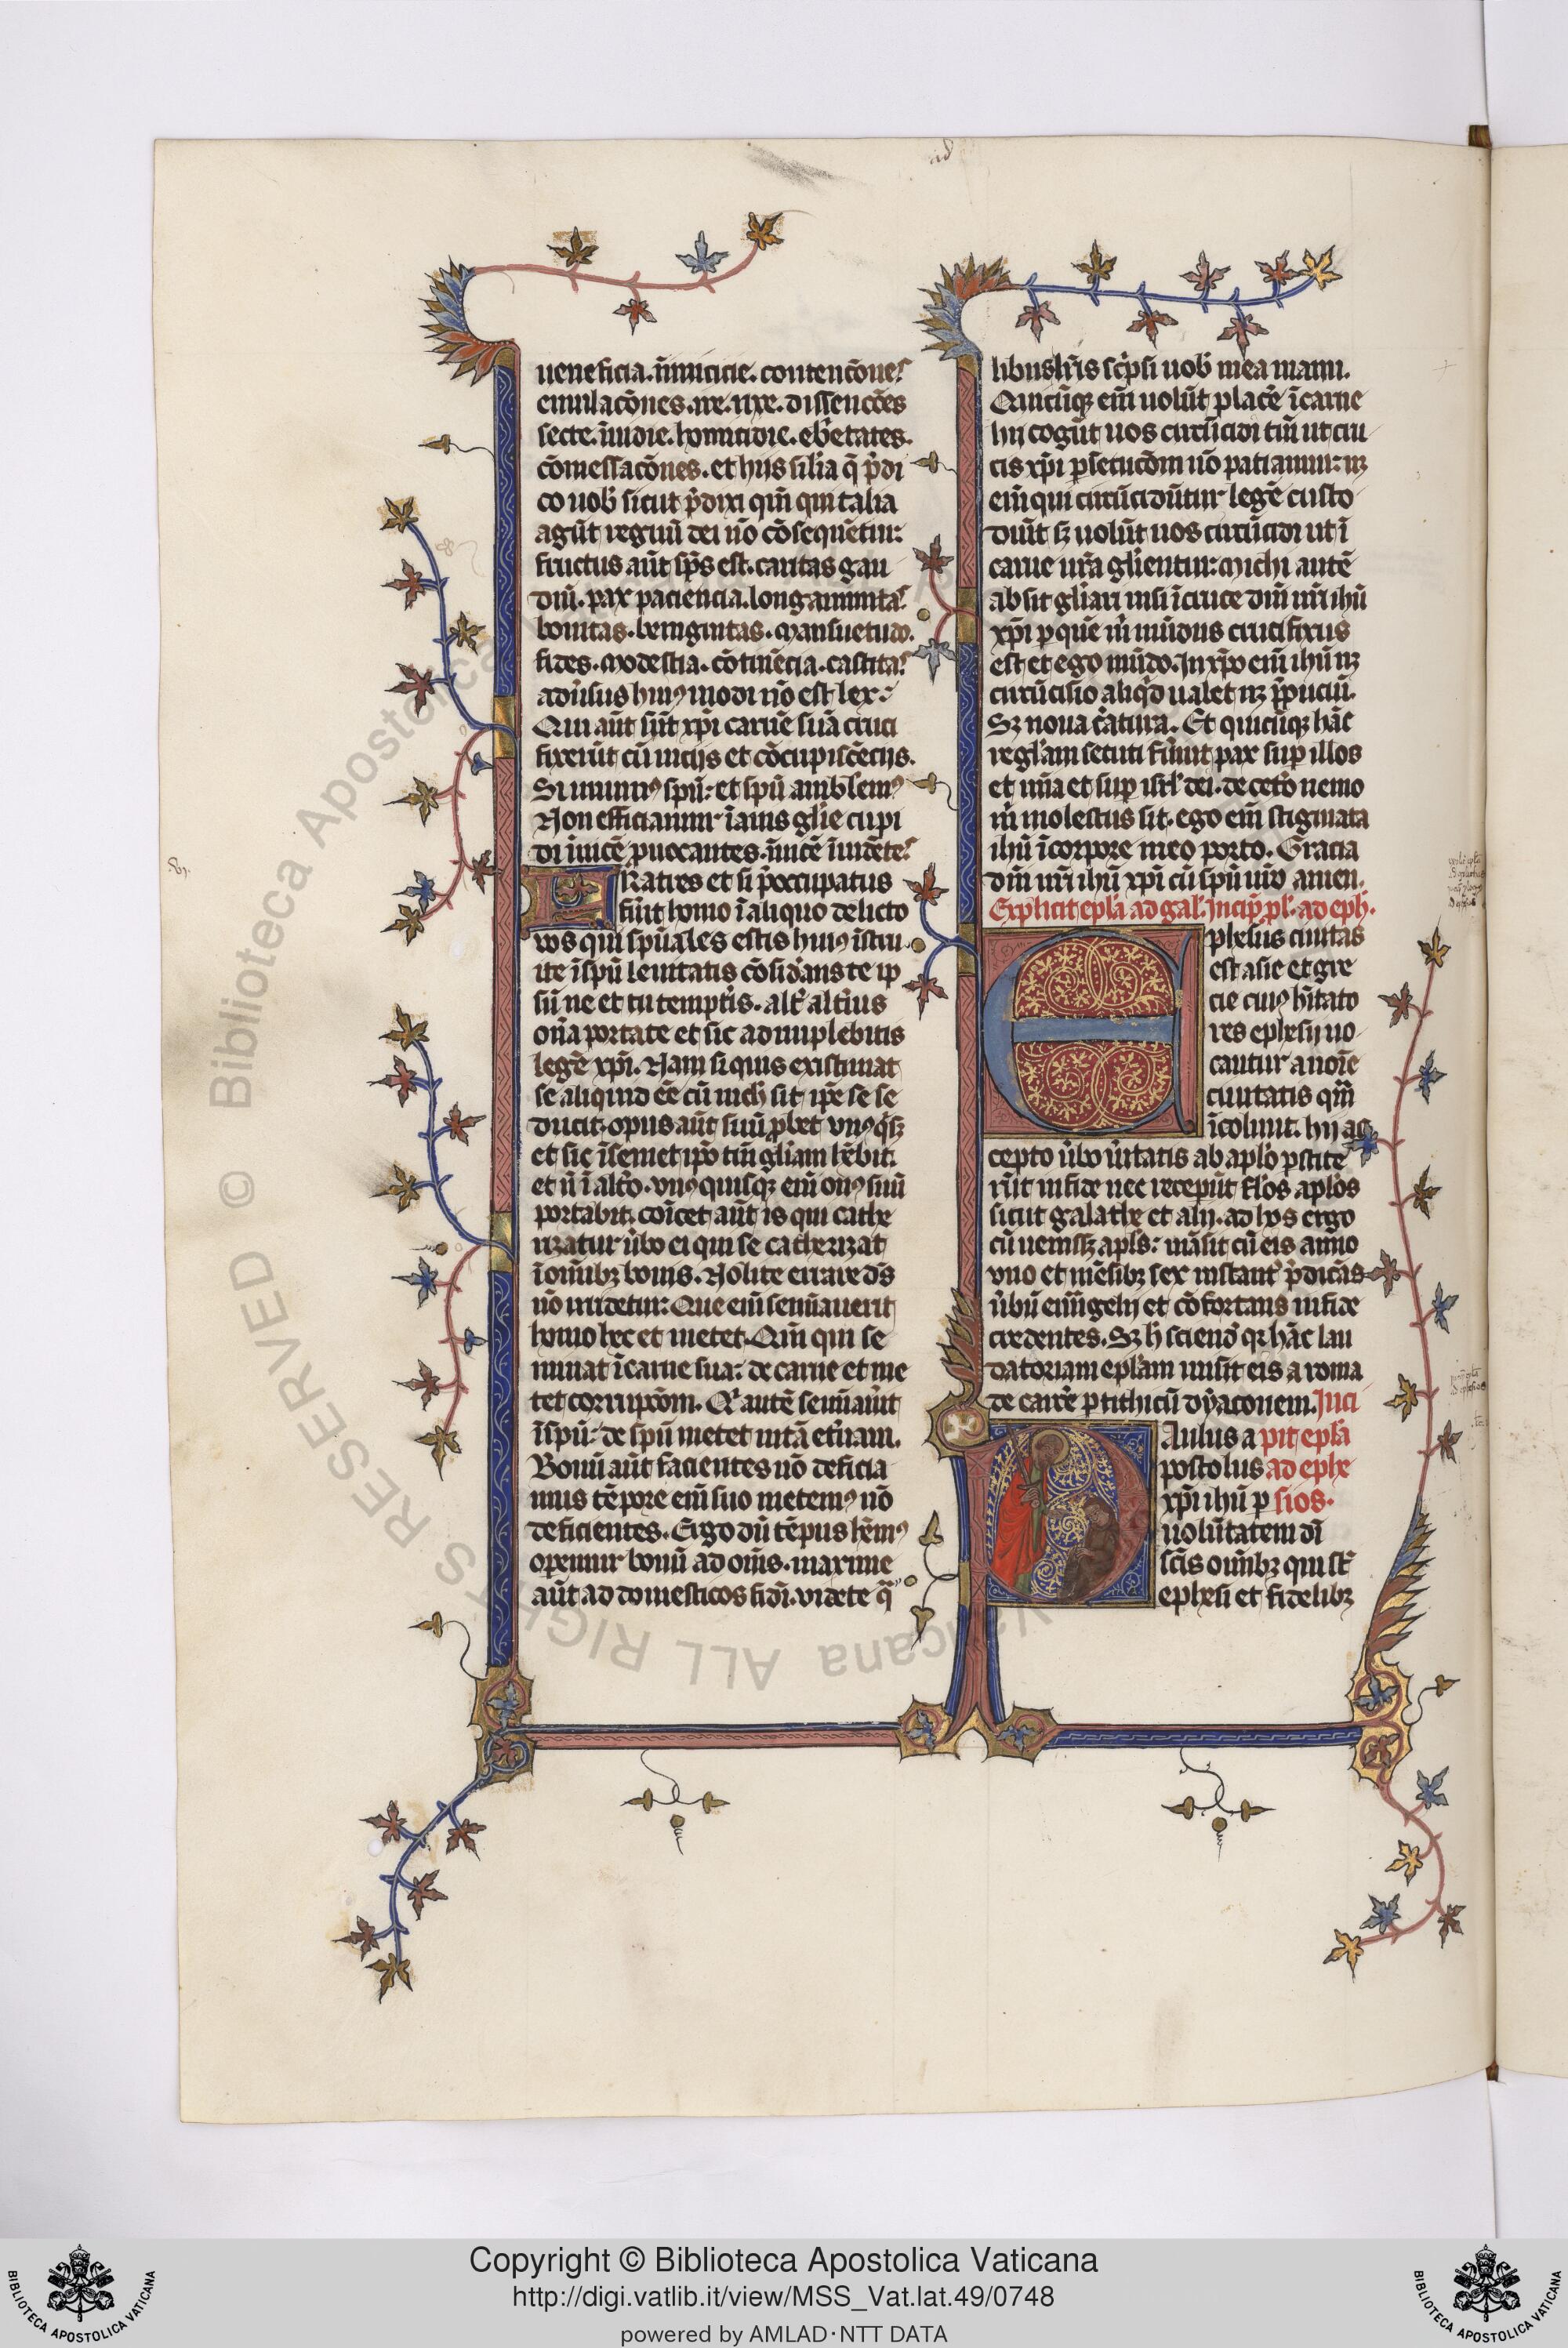 ueneficia. īmicicie. contenc̄ones
emulac̄ones. ire. rixe. dissenc̄oēs
secte. īuidie. homicidie. eb̾etates.
cōmessac̄ones. et hijs sil̾ia q̄ p̄di
co uob̾ sicut p̄dixi qm̄ qui talia
agūt regnū dei nō cōsequētur:
fructus aūt sp̄s est. caritas gau
diū. pax paciencia. longanimitas
bonitas. benignitas. mansuetudo.
fides. modestia. cōtinēcia. castitas
adu̾sus huiꝰ modi nō est lex:
Qui aūt sūt xp̄i carnē suā cruci
fixerūt cū uicijs et cōcupiscēcijs.
Si uiuimꝰ spū: et spū ambl̾emꝰ
Non efficiamur īanis gl̾ie cupi
di īuicē ꝓuocantes. īuicē īuidētes
FRatres et si p̄occupatus
fu̾it homo ī aliquo delicto
uos qui spūales estis huiꝰ īstru
ite ī spū lenitatis cōsid̾ans te ip
sū ne et tu tempt̾is. alt̾ alt̾ius
on̄a portate et sic adimplebitis
legē xp̄i. Nam si quis existimat
se aliquid ēē cū nich̾ sit ip̄e se se
ducit. opus aūt suū ꝓbet vnꝰqͥsqꝫ
et sic ī semet ip̄o tm̄ gl̾iam hēbit.
et n̄ ī alt̾o. vnꝰ quisqꝫ em̄ onꝰ suū
portabit. cōicet aūt is qui cathe
rizatur u̾bo ei qui se catherizat
ī om̄ibꝫ bonis. Nolite errare dẜ
nō irridetur: Que em̄ semīauerit
homo hec et metet. Qm̄ qui se
minat ī carne sua: de carne et me
tet corrupc̄om. Qͥ autē semīau̾it
ī spū: de spū metet uitā et̾nam.
Bonū aūt facientes nō deficia
mus tēpore em̄ suo metemꝰ nō
deficientes. Ergo dū tēpus hēmꝰ
operemur bonū ad om̄s. maxime
aūt ad domesticos fidei. videte qͣ
libus lr̄is sc̾psi uob̾ mea manu.
Quicūqꝫ em̄ uolūt place̾ ī carne
hij cogūt uos circūcidi tm̄ ut cru
cis xp̄i ꝑsecuc̄om nō patiantur: nꝫ
em̄ qui circūcidūtur legē custo
diūt sꝫ uolūt uos circūcidi ut ī
carne ur̄a gl̾ientur: michi autē
absit gl̾iari nisi ī cruce dn̄i nr̄i ihū
xp̄i ꝑ quē m̾ mūdus crucifixus
est et ego mūdo. In xp̄o em̄ ihū nꝫ
circūcisio aliqͥd ualet nꝫ p̄puciū.
Sꝫ noua c̾atura. Et quicūqꝫ hāc
regl̾am secuti fu̾int pax suꝑ illos
et mīa et suꝑ isrl̾ dei. de cet̾o nemo
m̾ molestus sit. ego em̄ stigmata
ihū ī corpore meo porto. Gracia
dn̄i nr̄i ihū xp̄i cū spū ur̄o amen.
Explicit epl̾a ad gal. Incip̄ pl̾. ad eph.
Ephesus ciuitas
est asie et gre
cie cuiꝰ h̾itato
res ephesij uo
cantur a noīe
ciuitatis qm̄
īcolunt. hij ac
cepto u̾bo u̾itatis ab apl̾o ꝑstite
rūt in fide nec recepūt fl̾os apl̾os
sicut galathe et alij. ad hos ergo
cū uenissꝫ apl̾s: māsit cū eis anno
vno et mēsibꝫ sex instant̾ p̄dicās
u̾bū euāgelij et cōfortans in fide
credentes. Sꝫ h̾ sciend̾ qꝛ hāc lau
datoriam epl̾am misit eis a roma
de carce̾ ꝑ tithicū dyaconem. Inci
PAulus a pit epl̾a
postolus ad ephe
xp̄i ihū ꝑ sios.
uolūtatem dī
sc̄is om̄ibꝫ qui st̄
ephesi et fidelibꝫ
© Biblioteca Apostolica Vaticana ALL RIGHTS RESERVED
Copyright © Biblioteca Apostolica Vaticana
http://digi.vatlib.it/view/MSS_Vat.lat.49/0748
powered by AMLAD·NTT DATA
BIBLIOTECA APOSTOLICA VATICANA
BIBLIOTECA APOSTOLICA VATICANA